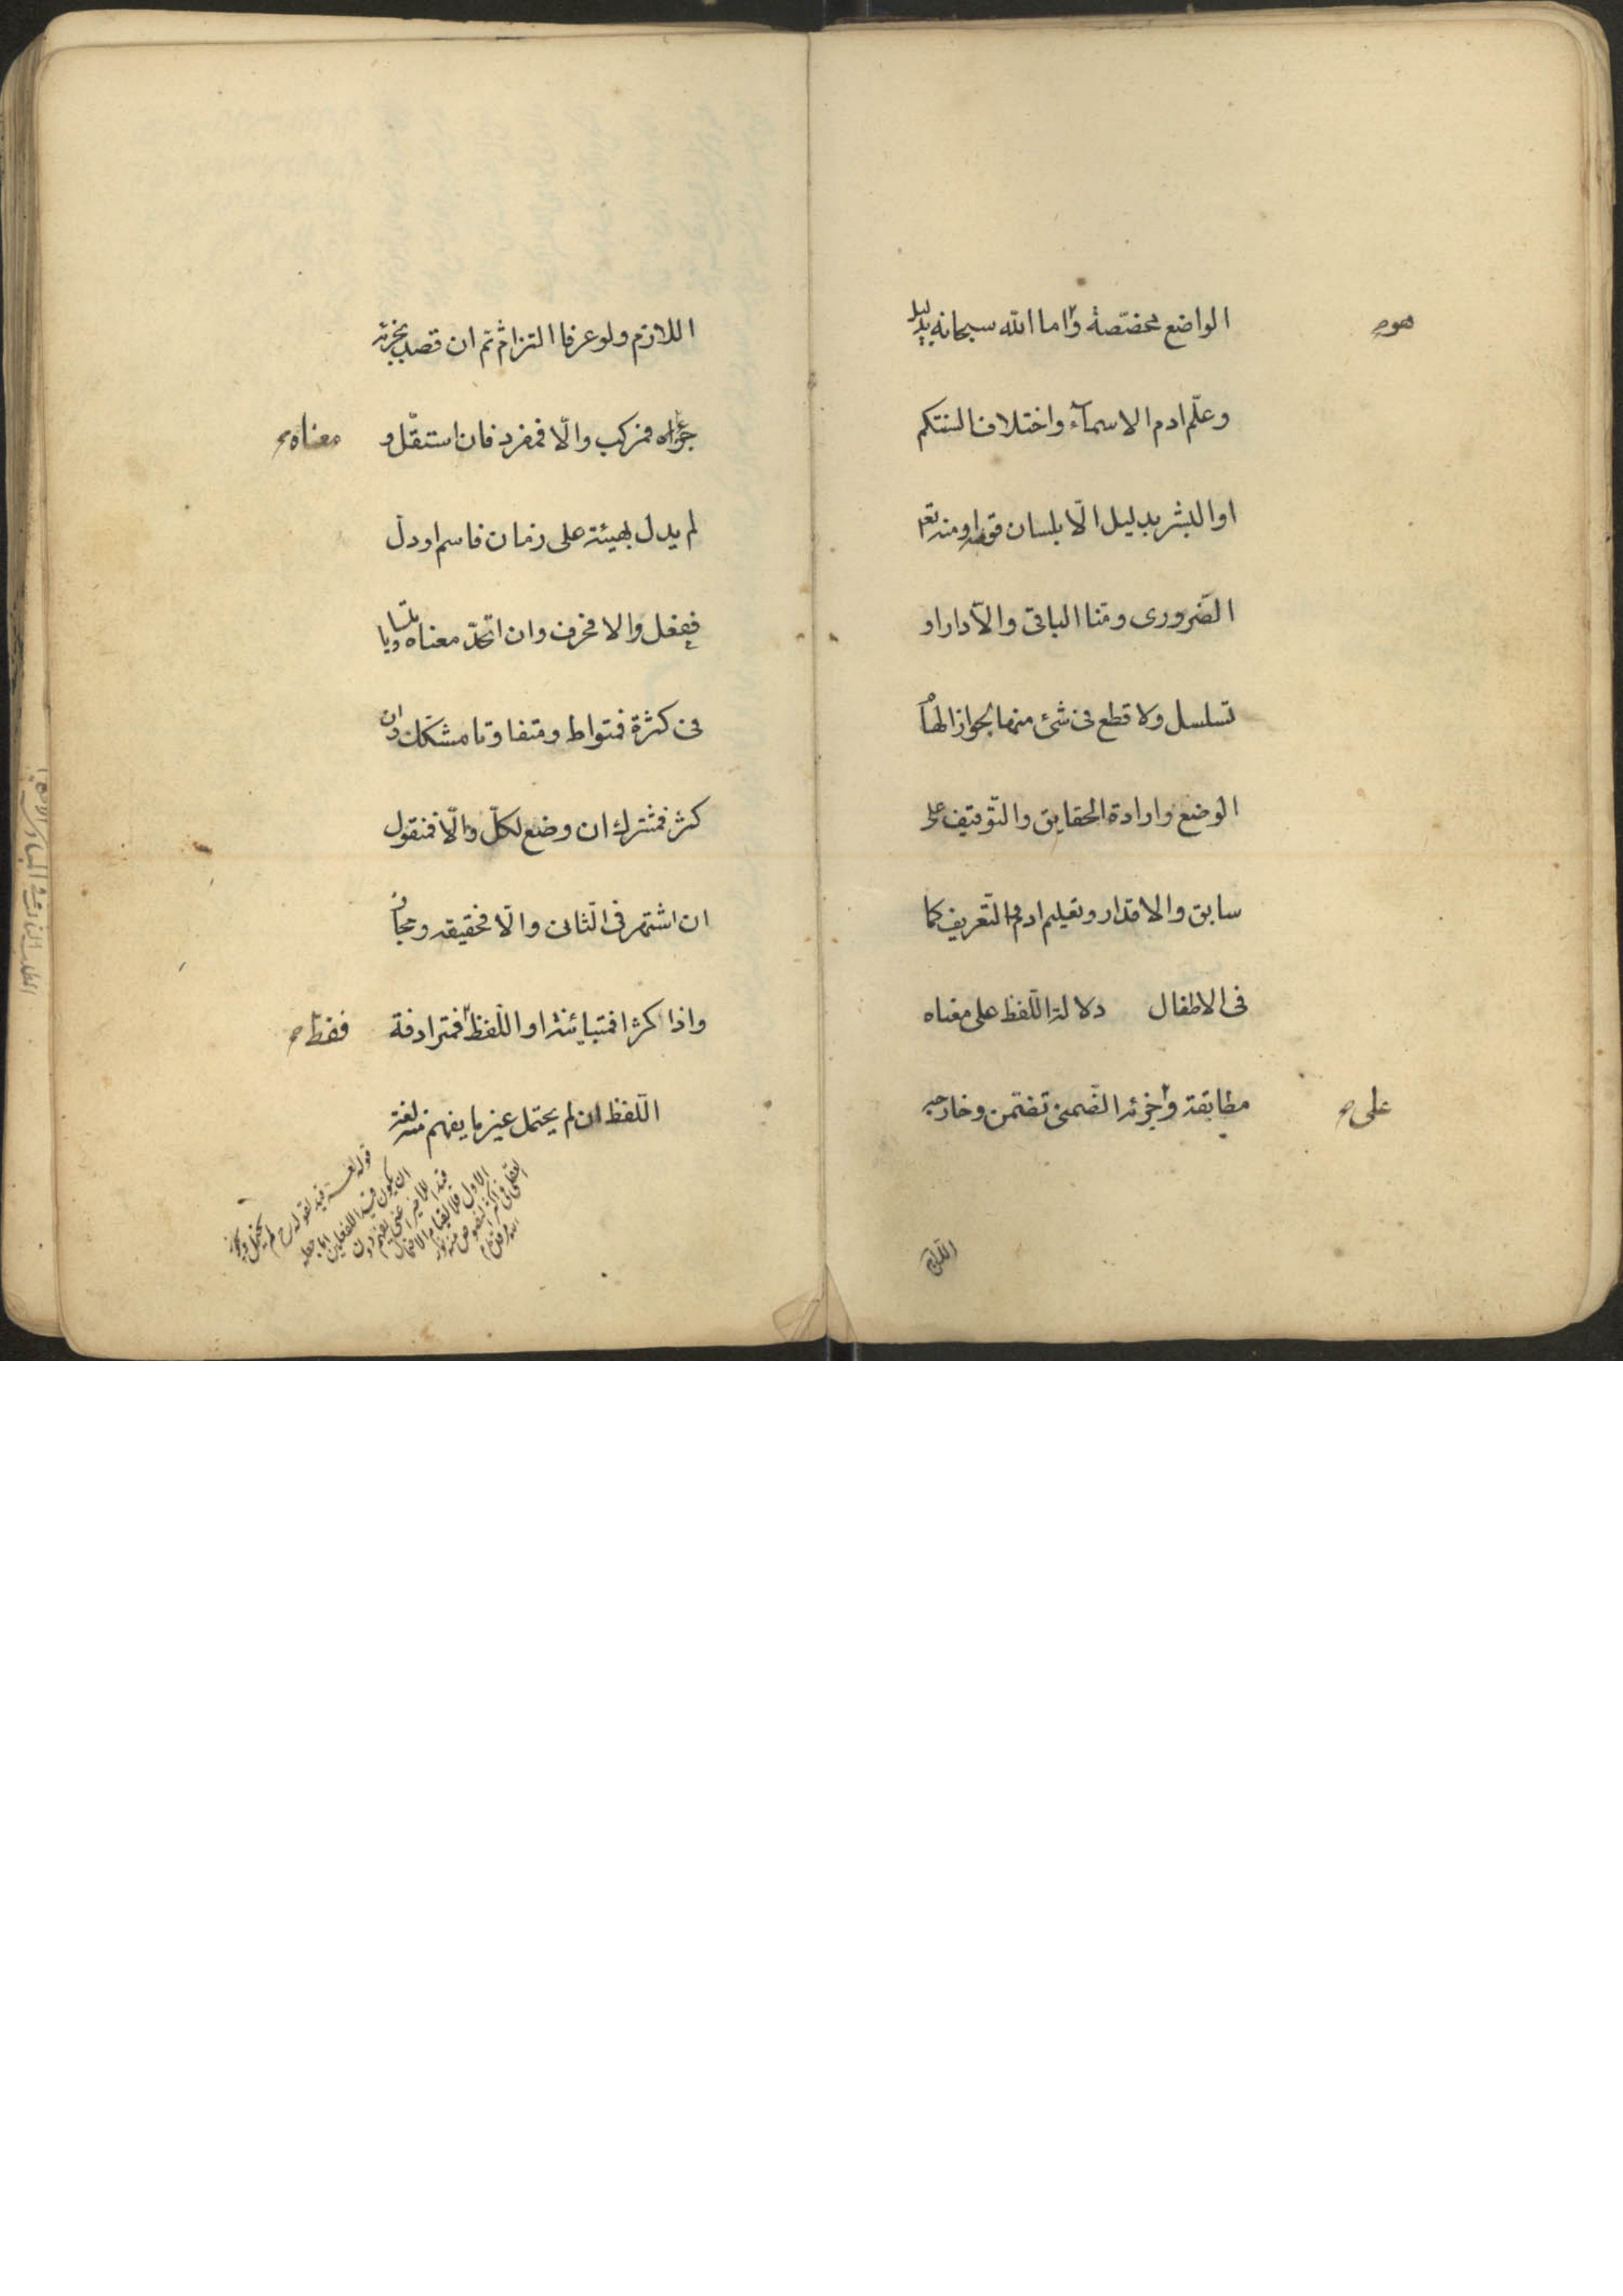 الواضع مخصّصة و اما الله سبحانه بدليل
هو
وعلّم ادم الاسمآء واختلاف السنتكم
او البشر بدليل الّا بلسان قومه او منه تع
الضّرورى ومنّا الباقى والّا دار او
تسلسل ولا قطع فى شئ منها لجواز الهام
الوضع وارادة الحقايق والتّوقيف على
سابق والاقدار وتعليم ادم التّعريف كما
فى الاطفال دلالة اللّفظ على معناه
مطابقة و جزئه الضّمنى تضمّن وخارجه
على
اللازم ولو عرفا التزام ثم ان قصد بجزئه
جزء معناه فمركب والّا فمفرد فان استقلّ و
معناه
لم يدل بهيئته على زمان فاسم او دلّ
ففعل والا فحرف وان اتّحد معناه متساويا
فى كثرة فمتواط ومتفاوتا مشكّك وان
كثر فمشترك ان وضع لكلّ والّا فمنقول
ان اشتهر فى الثانى والّا فحقيقه ومجاز
واذا كثرا فمتباينة او اللّفظ فمترادفة
فقط
اللّفظ ان لم يحتمل غير ما يفهم منه لغة